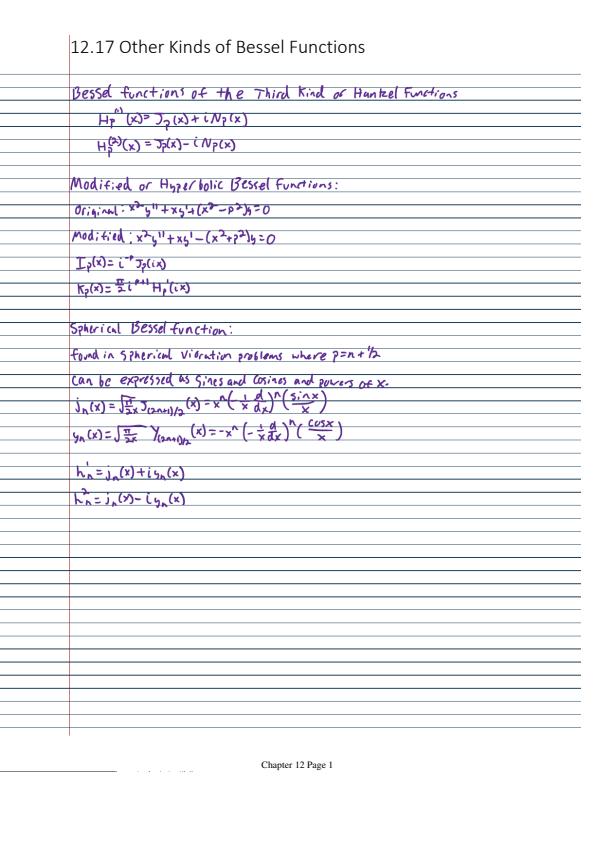 12.17 Other Kinds of Bessel Functions
Bessel functions of the Third Kind or Hankel Functions
Hp⁽¹⁾(x) = Jp(x) + i Np(x)
Hp⁽²⁾(x) = Jp(x) - i Np(x)
Modified or Hyperbolic Bessel Functions:
Original: x²y'' + xy' + (x² - p²)y = 0
Modified: x²y'' + xy' - (x² + p²)y = 0
Ip(x) = i⁻ᵖ Jp(ix)
Kp(x) = π/2 iᵖ⁺¹ Hp¹(ix)
Spherical Bessel function:
found in spherical vibration problems where p = n + 1/2
can be expressed as sines and cosines and powers of x.
jₙ(x) = √(π/2x) J₍₂ₙ₊₁₎/₂(x) = xⁿ(-1/x d/dx)ⁿ(sinx/x)
yₙ(x) = √(π/2x) Y₍₂ₙ₊₁₎/₂(x) = -xⁿ(-1/x d/dx)ⁿ(cosx/x)
hₙ¹ = jₙ(x) + iyₙ(x)
hₙ² = jₙ(x) - iyₙ(x)
Chapter 12 Page 1